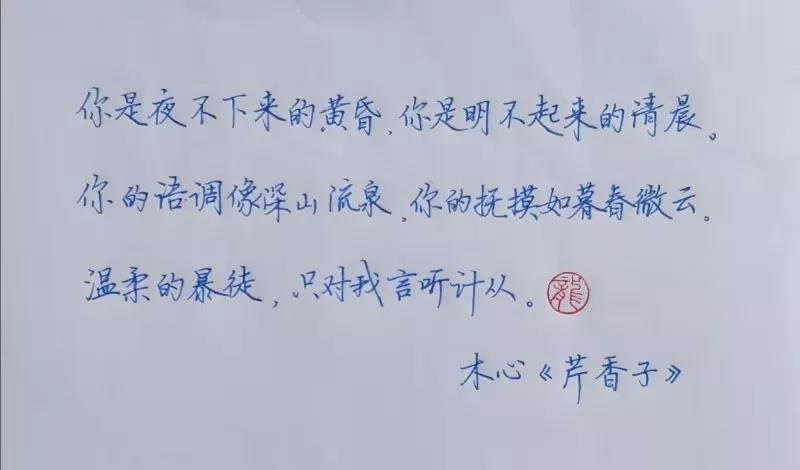 你是夜不下来的黄昏,你是明不起来的清晨。
你的语调像深山流泉,你的抚摸如暮春微云。
温柔的暴徒,只对我言听计从。龍
木心《芹香子》